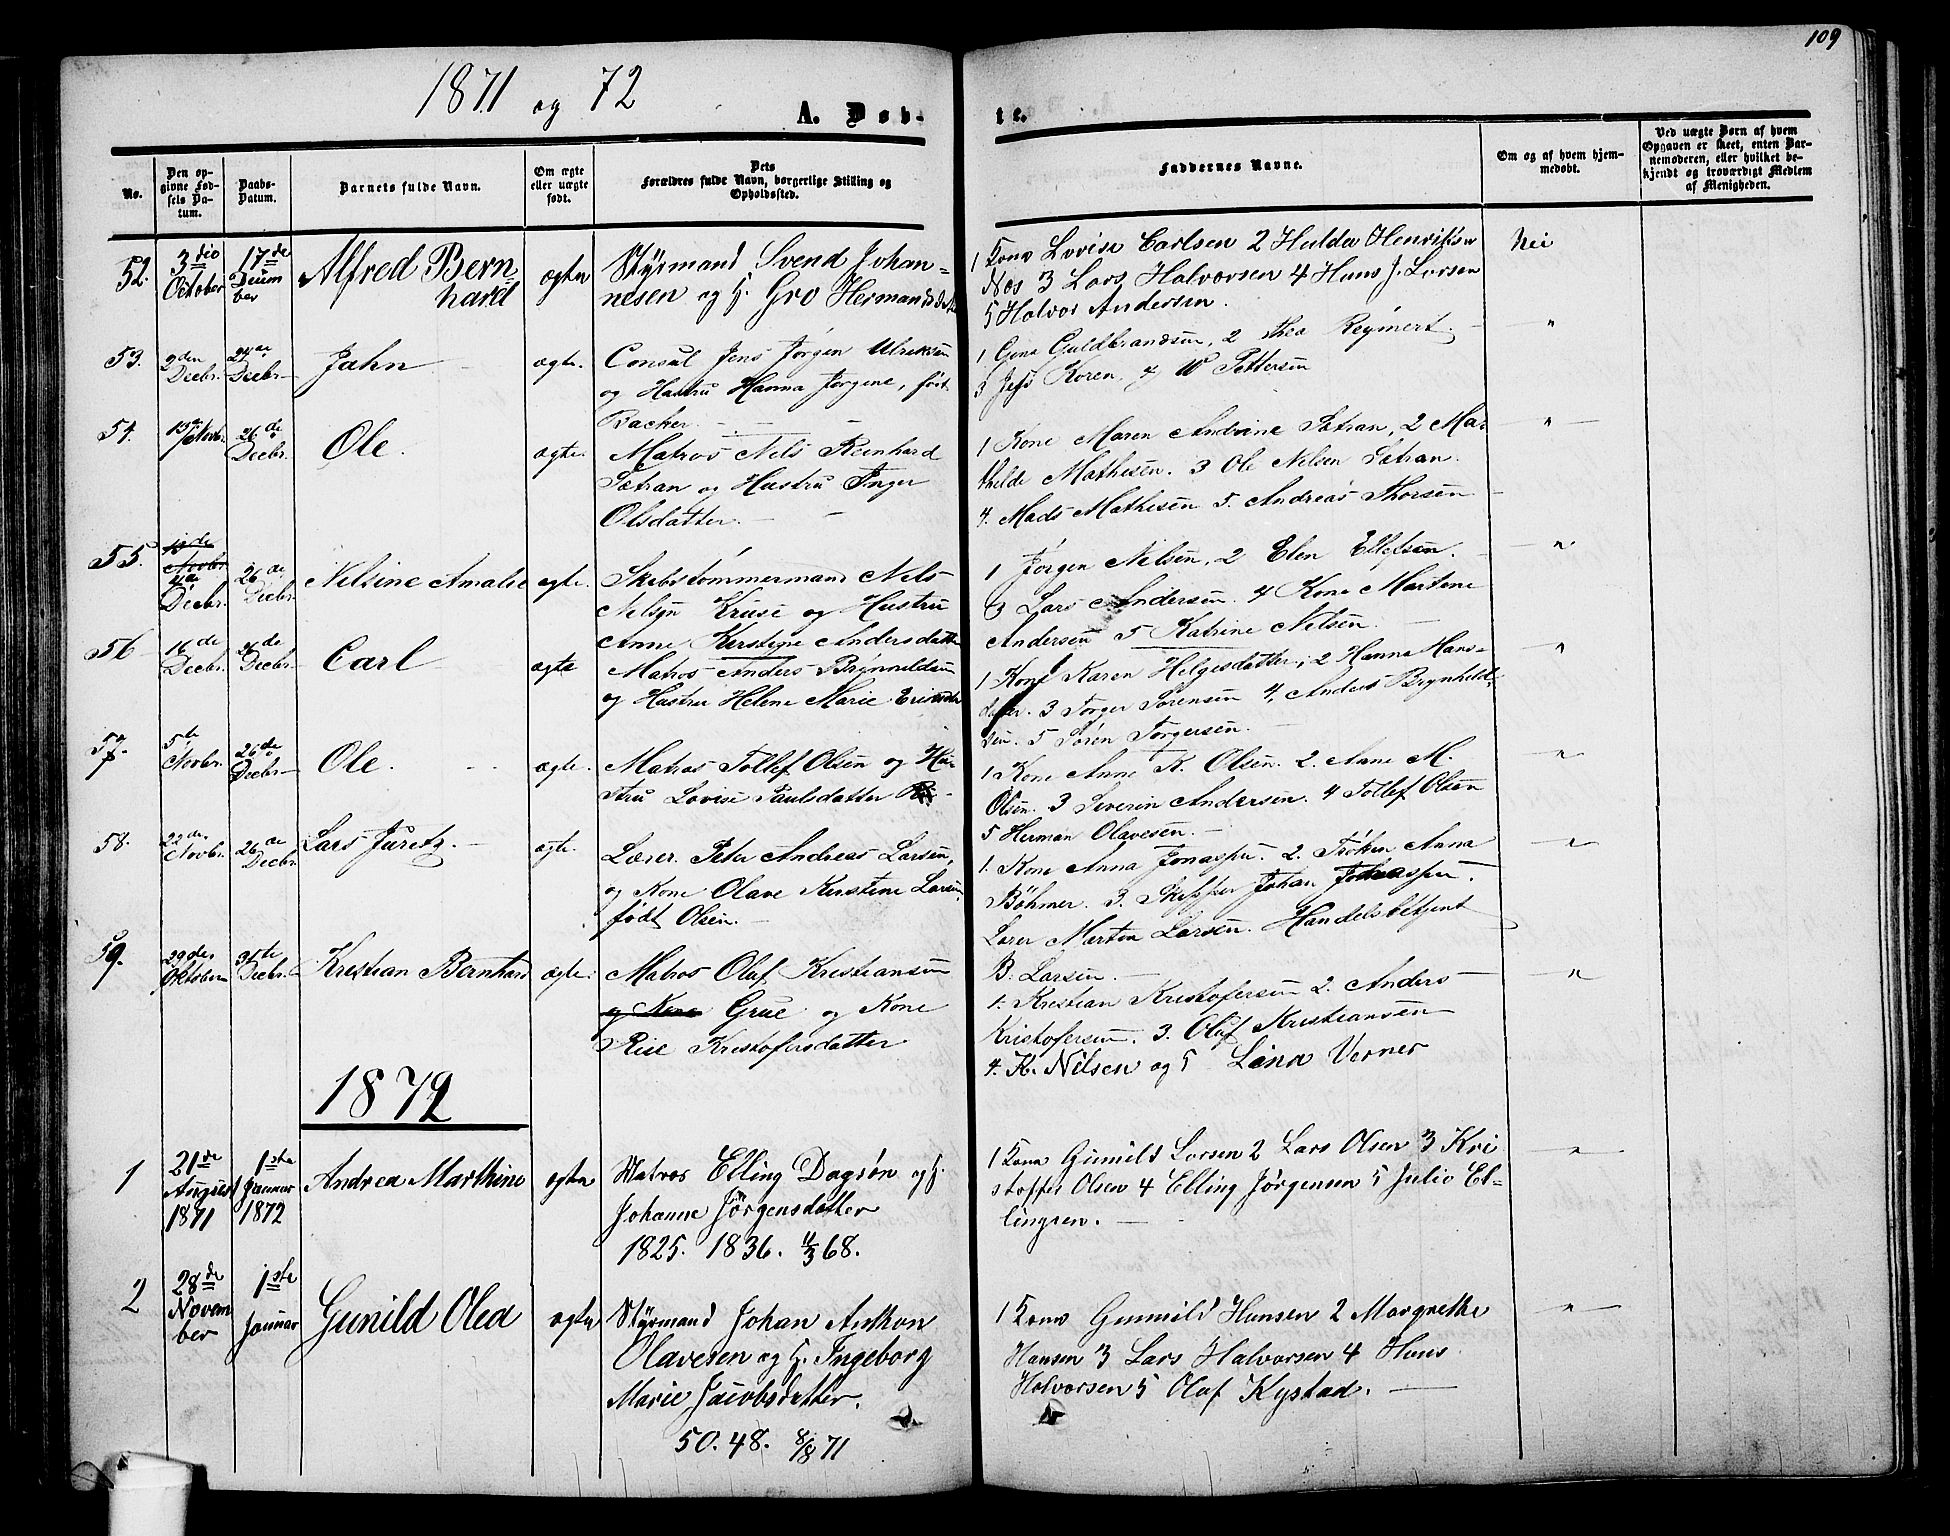 109
1871 og 72
A. Døb-
te.
No.
Den op-
givne Fød-
sels Da-
tum.
Daabs-
Datum.
Barnets fulde Navn.
Om ægte
eller uægte
født.
Dets
Forældres fulde Navn, borgerlige Stilling og
Opholdssted.
Faddernes Navne.
Om og af hvem hjem-
medøbt.
Ved uægte Børn af hvem
Opgaven er skeet, enten Bar-
nemoderen, eller hvilket be-
kjendt og troværdigt Medlem
af Menigheden.
52.
3die
October
17de
Decem
ber
Alfred Bern
hard
ægte
Styrmand Svend Johan-
nesen og H. Gro Hermandsdatter
1 Kone Lovise Carlsen 2 Hulda Henriksen
Næs 3 Lars Halvorsen 4 Hans J. Larsen
5 Halvor Andersen.
Nei
53.
9den
Decbr.
24de
Decbr
Jahn
ægte.
Consul Jens Jørgen Ulriksen
og Hustru Hanna Jørgene, født
Backer.
1 Gina Guldbrandsen, 2 Thea Reymert.
3 Jess Koren 4 W Pettersen
"
54.
Novbr.
26de
Decbr.
Ole.
ægte.
Matros Nels Reinhard
Sætran og Hustru Inger
Olsdatter.
1 Kone Maren Andrine Sætran, 2 Ma-
thilde Mathisen. 3 Ole Nelsen Sætran.
4. Mads Mathisen 5. Andreas Thorsen
"
55.
Novbr
4de
Decbr.
26de
Decbr.
Nelsine Amalie
ægte.
Skibstømmermand Nels
Nelsen Kruse og Hustru
Anne Kerstine Andersdatter
1 Jørgen Nelsen, 2 Elen Ellefsen.
3 Lars Andersen. 4 Kone Martene
Andersen 5 Katrine Nelsen.
"
56
16de
Decbr.
26de
Decbr.
Carl
ægte
Matros Anders Brynnildsen
og Hustru Helene Marie
1 Kone Karen Helgesdatter, 2 Hanna Hans-
datter. 3 Torger Sørensen 4, Anders Brynhild-
sen. 5 Søren Torgersen.
"
57.
5te
Novbr.
26de
Decbr
Ole.
ægte.
Matros Tollef Olsen og Hu-
stru Lovise Paulsdatter
1 Kone Anne K. Olsen. 2. Anne M.
Olsen. 3 Severin Andersen. 4 Tollef Olsen
5 Herman Olavesen.
"
58.
22de
Novbr.
26de
Decbr.
Lars Juretz.
ægte.
Lærer. Peter Andreas Larsen,
og Kone Olave Kerstine Larsen,
født Olsen.
1. Kone Anna Jonassen. 2. Frøken Anna
Bøhmer. 3. Skipper Johan Jonassen.
Lærer Marten Larsen. Handelsbetjent
B. Larsen.
"
59.
29de
Oktober
31te
Decbr.
Kristian Bernhard
ægte.
Matros Olaf Kristiansen
og Kone Grue og Kone
Rise Kristofersdatter
1. Kristian Kristofersen 2. Anders
Kristofersen. 3. Olaf Kristiansen
4. K. Nilsen og 5 Lina Verner
"
1872
1
21de
August
1871
1ste
Januar
1872
Andrea Marthine
ægte
Matros Elling Dagsøn og H.
Johanne Jörgensdatter
1825. 1836. 4/3 68.
1 Kone Gunild Larsen 2 Lars Olsen 3 Kri
stoffer Olsen 4 Elling Jörgensen 5 Julie El-
lingsen.
"
2
28de
Novem
ber
1ste
Januar
Gunild Olea
ægte
Styrmand Johan Anthon
Olavesen og H. Ingeborg
Marie Jacobsdatter.
50. 48. 8/8 71
1 Kone Gunnild Hansen 2 Margrethe
Hansen 3 Lars Halvorsen 4 Hans
Halvorsen 5 Olaf Kystad.
"